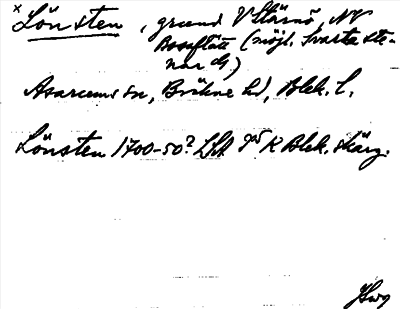 x Lönsten, grund V Stärnö, NV
Bosflätt (möjl. Svarta ste-
nar G)
Asarums sn, Bräkne hd, Blek. l.
Lönsten 1700-50? LSA K Blek. skärg.
Hwg